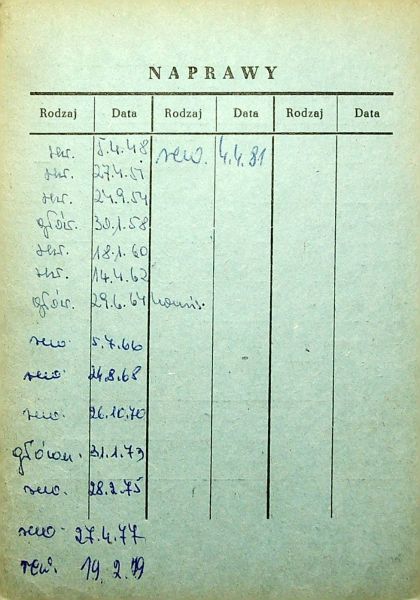 NAPRAWY
Rodzaj Data Rodzaj Data Rodzaj Data
rew. 5.4.48 rew. 4.4.81
rew. 27.4.51
rew. 24.9.54
głów. 30.1.58
rew. 18.1.60
rew. 14.4.62
głów. 29.6.64
rew. 5.7.66
rew. 24.8.68
rew. 26.10.70
główn. 31.1.73
rew. 28.2.75
rew. 27.4.77
rew. 19.2.79